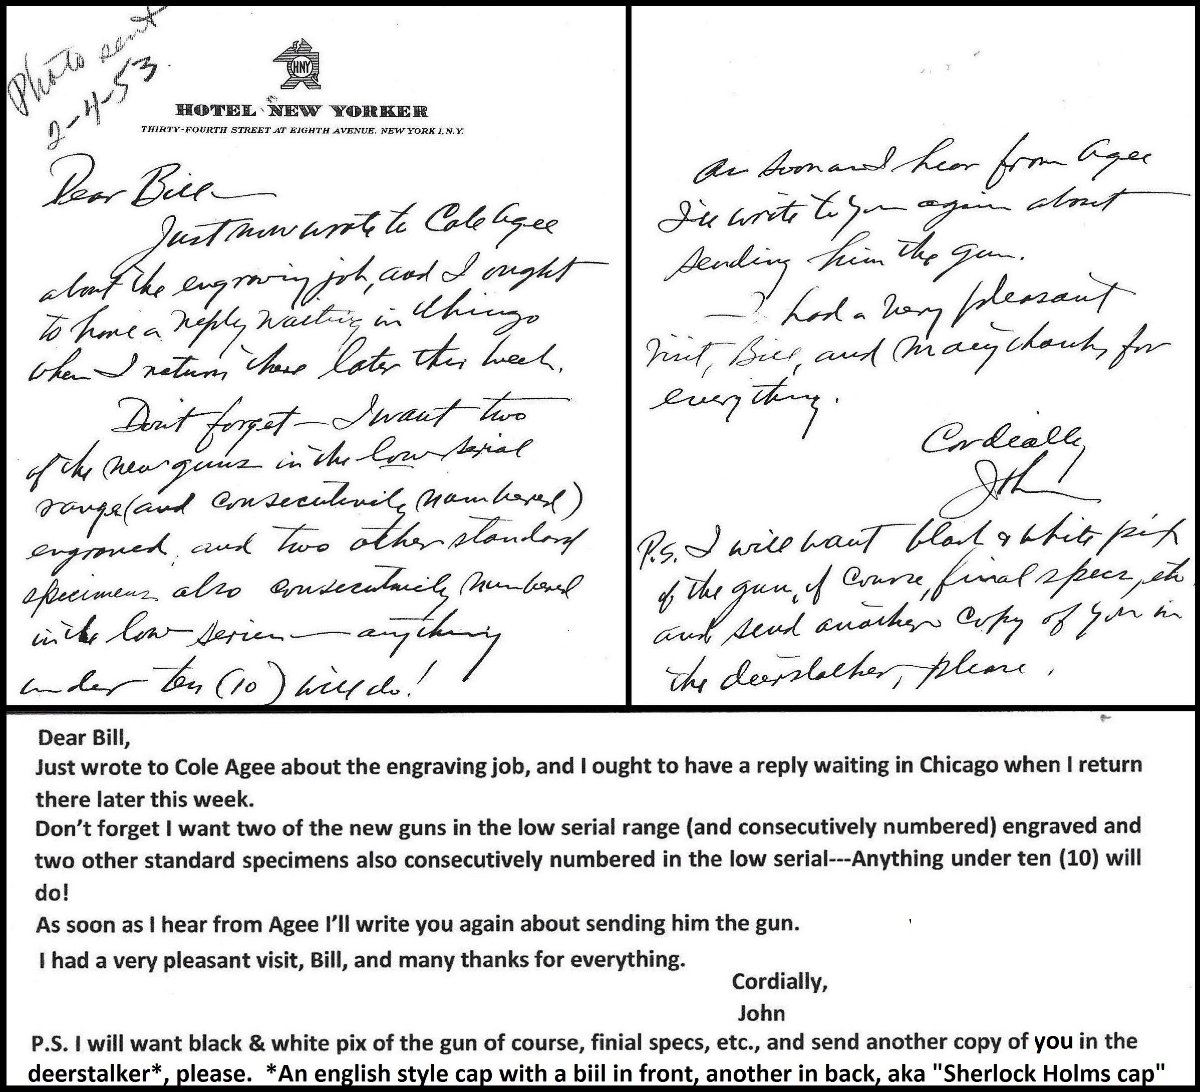 Photo sent
2-4-53.
HNY
HOTEL NEW YORKER
THIRTY-FOURTH STREET AT EIGHTH AVENUE, NEW YORK 1, N.Y.
Dear Bill—
Just now wrote to Cole Agee
about the engraving job, and I ought
to have a reply waiting in Chicago
when I return there later this week.
Don't forget — I want two
of the new guns in the low serial
range (and consecutively numbered)
engraved, and two other standard
specimens also consecutively numbered
in the low series — anything
under ten (10) will do!
As soon as I hear from Agee
I'll write to you again about
sending him the gun.
— I had a very pleasant
visit, Bill, and many thanks for
everything.
Cordially
John
P.S. I will want black & white pix
of the gun, of course, final specs, etc
and send another copy of you in
the deerstalker, please.
Dear Bill,
Just wrote to Cole Agee about the engraving job, and I ought to have a reply waiting in Chicago when I return
there later this week.
Don't forget I want two of the new guns in the low serial range (and consecutively numbered) engraved and
two other standard specimens also consecutively numbered in the low serial---Anything under ten (10) will
do!
As soon as I hear from Agee I'll write you again about sending him the gun.
I had a very pleasant visit, Bill, and many thanks for everything.
Cordially,
John
P.S. I will want black & white pix of the gun of course, finial specs, etc., and send another copy of you in the
deerstalker*, please. *An english style cap with a biil in front, another in back, aka "Sherlock Holms cap"